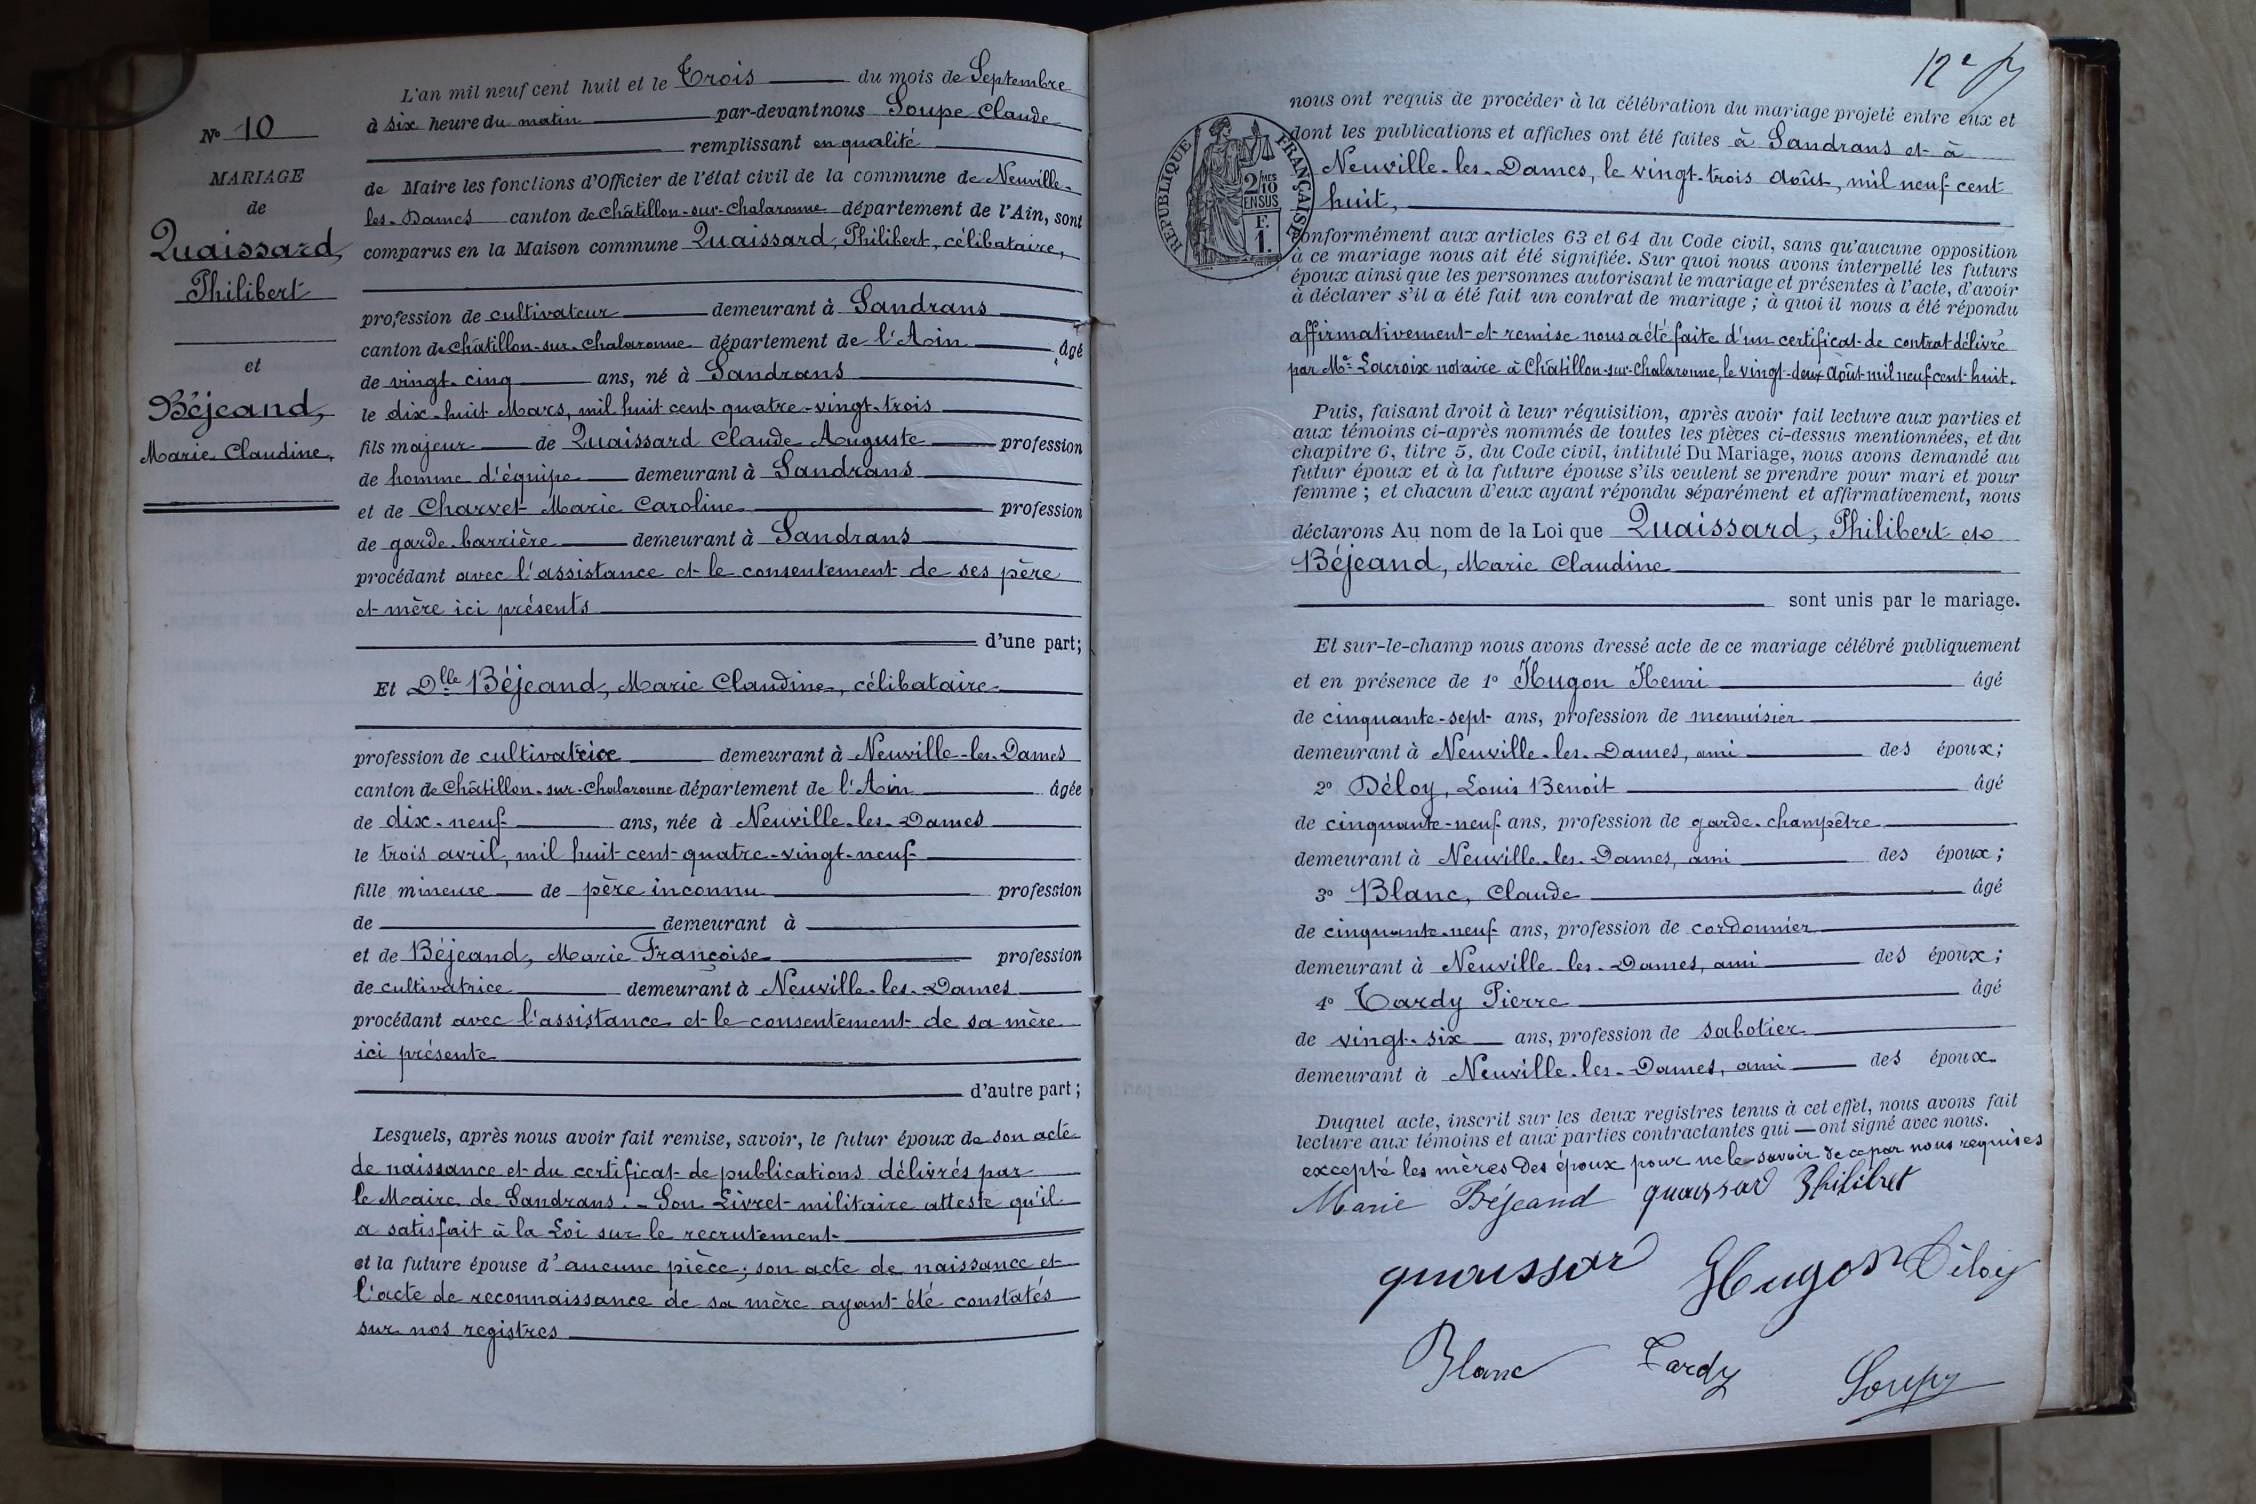 L'an mil neuf cent huit et le Trois du mois de Septembre
à six heure du matin par-devant nous Soupe Claude
remplissant en qualité
de Maire les fonctions d'Officier de l'état civil de la commune de Neuville-
les-Dames canton de Châtillon-sur-Chalaronne département de l'Ain, sont
comparus en la Maison commune Quaissard, Philibert, célibataire,
profession de cultivateur demeurant à Sandrans
canton de Châtillon-sur-Chalaronne département de l'Ain âgé
de vingt-cinq ans, né à Sandrans
le dix-huit Mars, mil huit cent quatre-vingt-trois
fils majeur de Quaissard Claude Auguste profession
de homme d'équipe demeurant à Sandrans
et de Charvet Marie Caroline profession
de garde-barrière demeurant à Sandrans
procédant avec l'assistance et le consentement de ses père
et mère ici présents
d'une part;
Et Dlle Béjeand, Marie Claudine, célibataire
profession de cultivatrice demeurant à Neuville-les-Dames
canton de Châtillon-sur-Chalaronne département de l'Ain âgée
de dix-neuf ans, née à Neuville-les-Dames
le trois avril, mil huit cent quatre-vingt-neuf
fille mineure de père inconnu profession
de demeurant à
et de Béjeand, Marie Françoise profession
de cultivatrice demeurant à Neuville-les-Dames
procédant avec l'assistance et le consentement de sa mère
ici présente
d'autre part;
Lesquels, après nous avoir fait remise, savoir, le futur époux de son acte
de naissance et du certificat de publications délivrés par
le Maire de Sandrans. - Son Livret militaire atteste qu'il
a satisfait à la Loi sur le recrutement
et la future épouse d'aucune pièce; son acte de naissance et
l'acte de reconnaissance de sa mère ayant été constatés
sur nos registres
N° 10
MARIAGE
de
Quaissard,
Philibert
et
Béjeand,
Marie Claudine,
12e
nous ont requis de procéder à la célébration du mariage projeté entre eux et
dont les publications et affiches ont été faites à Sandrans et à
Neuville-les-Dames, le vingt-trois Août, mil neuf cent
huit,
RÉPUBLIQUE FRANÇAISE
2/10MES
EN SUS
F.
1.
conformément aux articles 63 et 64 du Code civil, sans qu'aucune opposition
à ce mariage nous ait été signifiée. Sur quoi nous avons interpellé les futurs
époux ainsi que les personnes autorisant le mariage et présentes à l'acte, d'avoir
à déclarer s'il a été fait un contrat de mariage; à quoi il nous a été répondu
affirmativement et remise nous a été faite d'un certificat de contrat délivré
par Me Lacroix notaire à Châtillon-sur-Chalaronne, le vingt-deux Août mil neuf cent huit.
Puis, faisant droit à leur réquisition, après avoir fait lecture aux parties et
aux témoins ci-après nommés de toutes les pièces ci-dessus mentionnées, et du
chapitre 6, titre 5, du Code civil, intitulé Du Mariage, nous avons demandé au
futur époux et à la future épouse s'ils veulent se prendre pour mari et pour
femme; et chacun d'eux ayant répondu séparément et affirmativement, nous
déclarons Au nom de la Loi que Quaissard, Philibert et
Béjeand, Marie Claudine
sont unis par le mariage.
Et sur-le-champ nous avons dressé acte de ce mariage célébré publiquement
et en présence de 1° Hugon Henri âgé
de cinquante-sept ans, profession de menuisier
demeurant à Neuville-les-Dames, ami des époux;
2° Déloy, Louis Benoit âgé
de cinquante-neuf ans, profession de garde-champêtre
demeurant à Neuville-les-Dames, ami des époux;
3° Blanc, Claude âgé
de cinquante-neuf ans, profession de cordonnier
demeurant à Neuville-les-Dames, ami des époux;
4° Tardy Pierre âgé
de vingt-six ans, profession de sabotier
demeurant à Neuville-les-Dames, ami des époux
Duquel acte, inscrit sur les deux registres tenus à cet effet, nous avons fait
lecture aux témoins et aux parties contractantes qui ont signé avec nous.
excepté les mères des époux pour ne le savoir de ce par nous requises
Marie Béjeand quaissard Philibret
quaissar Hugon Déloy
Blanc Tardy Soupe